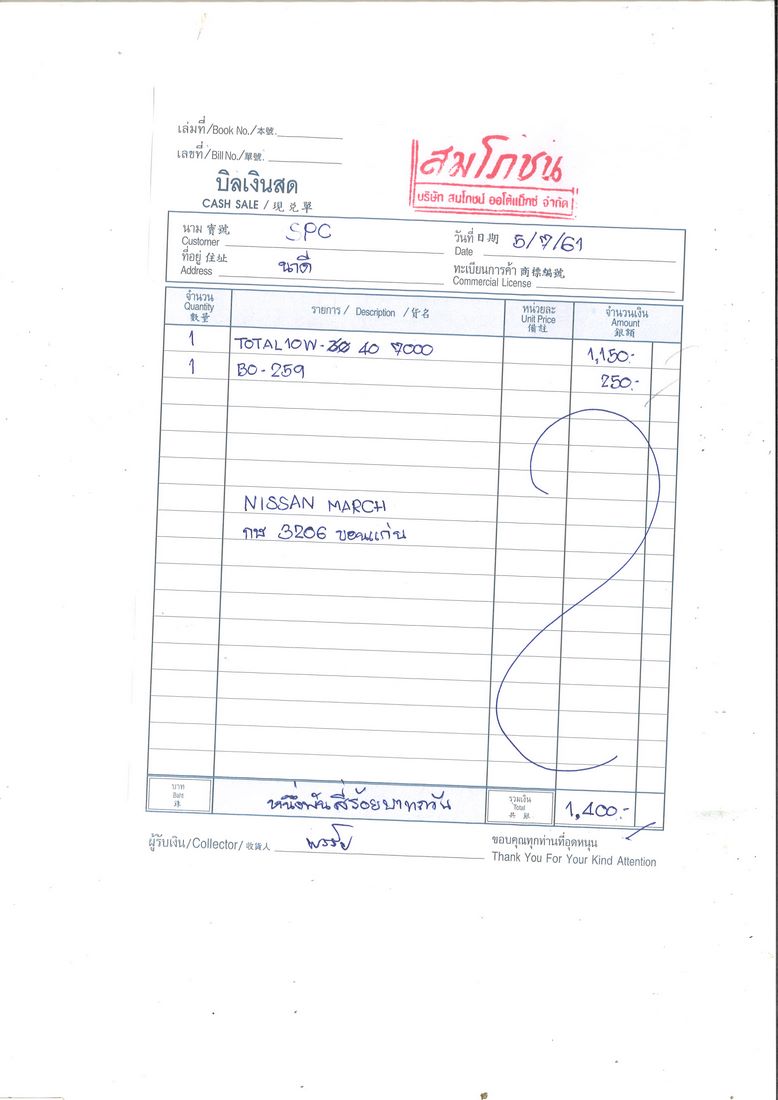 เล่มที่/Book No./本號.
เลขที่/Bill No./單號.
สมโภชน์
บริษัท สมโภชน์ ออโต้แม็กซ์ จำกัด
บิลเงินสด
CASH SALE / 現兑單
นาม 寶號 SPC
Customer
วันที่ 日期 5/7/61
Date
ที่อยู่ 住址 นาดี
Address
ทะเบียนการค้า 商標編號
Commercial License
จำนวน
Quantity
數量
รายการ / Description / 貨名
หน่วยละ
Unit Price
備註
จำนวนเงิน
Amount
銀額
1 TOTAL 10W-40 7000 1,150.-
1 BO-259 250.-
NISSAN MARCH
3206 ขอนแก่น
บาท
Baht
銖
หนึ่งพันสี่ร้อยบาทถ้วน
รวมเงิน
Total
共銀
1,400.-
ผู้รับเงิน/Collector/收貨人
ขอบคุณทุกท่านที่อุดหนุน
Thank You For Your Kind Attention